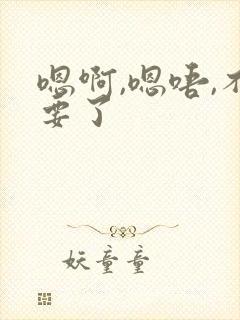 嗯啊,嗯唔,不
要了
妖童童